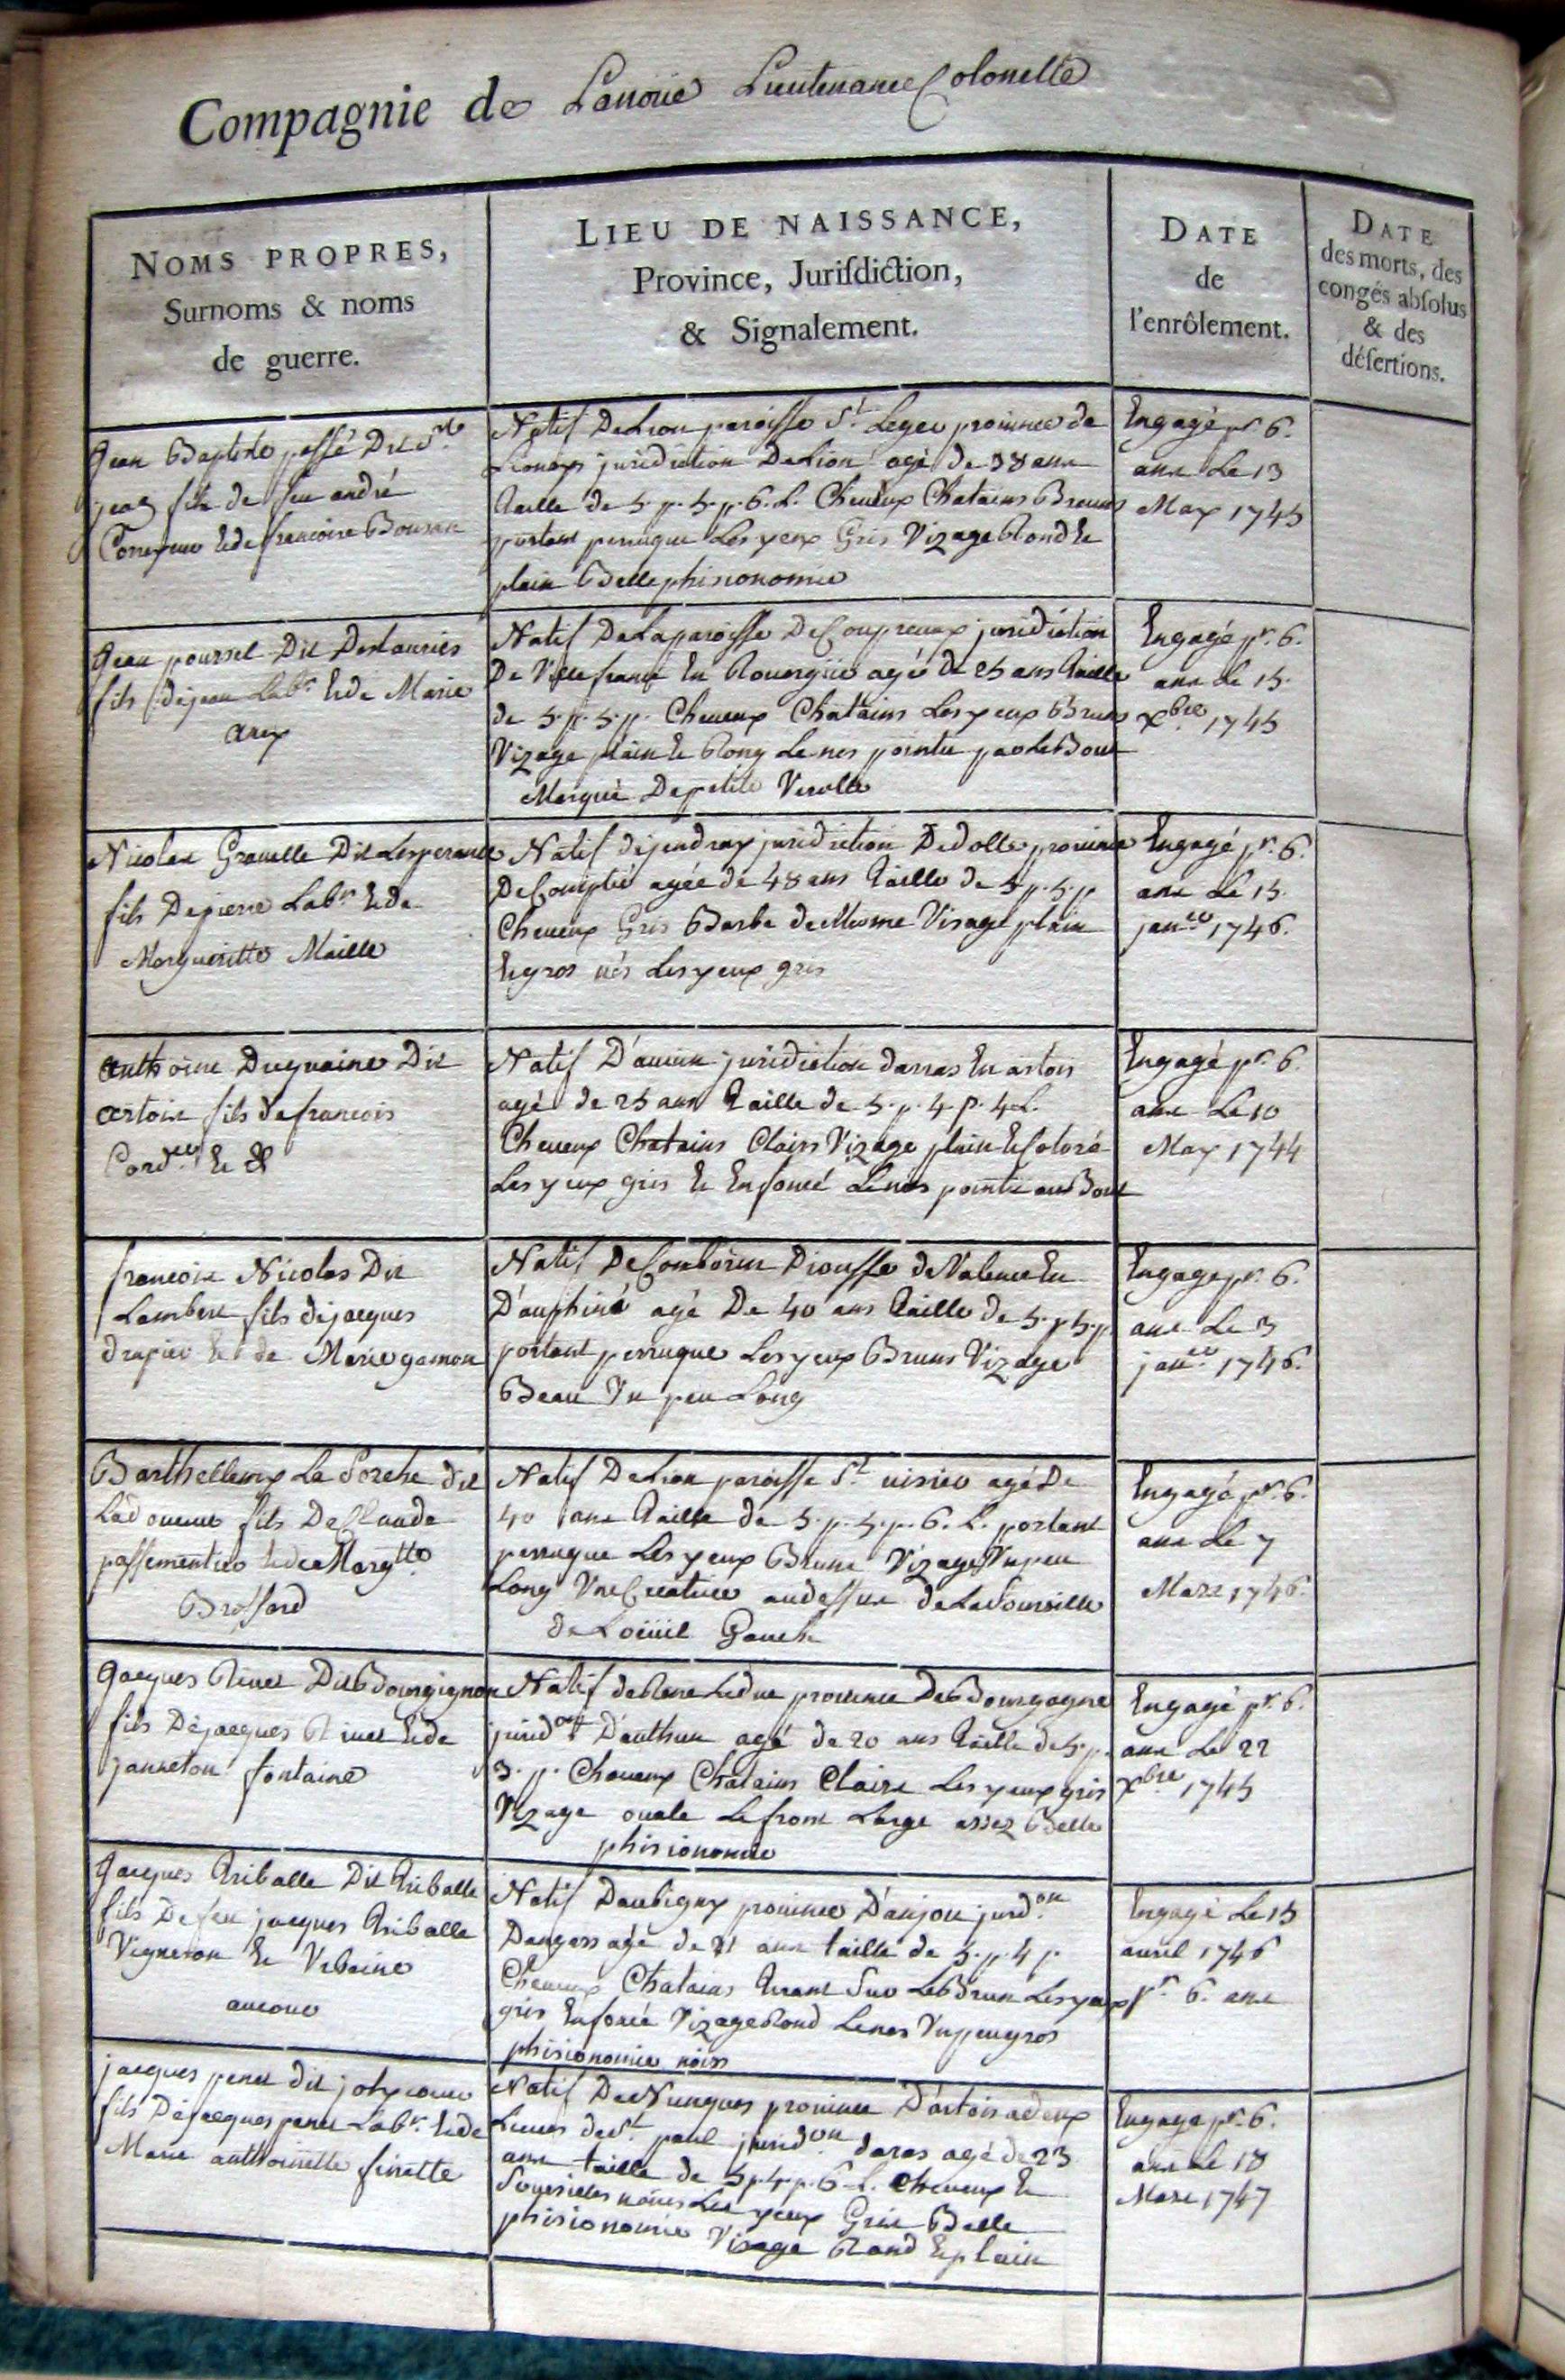 Compagnie de Lanoüe Lieutenance Colonelle
NOMS PROPRES,
Surnoms & noms
de guerre.
LIEU DE NAISSANCE,
Province, Jurisdiction,
& Signalement.
DATE
de
l'enrôlement.
DATE
des morts, des
congés absolus
& des
désertions.
Jean Baptiste passé Dit St
jean fils de feu andré
et de francoise
Natif De Lion paroisse St. Leger prouince de
Lionnois juridiction De Lion agé de 38 ans
taille de 5. p. 5. p. 6. L. Cheueux Chatains Bruns
portant perruque Les yeux Gris Vizage Rond et
plain Belle phisionomie
Engagé pr. 6.
ans Le 13
May 1745
Jean poursel Dit Deslauriés
fils de jean Labr. et de Marie
arex
Natif De La paroisse De Coupreaux juridiction
De Villefranche En Rouergüe agé de 25 ans taille
de 5. p. 5. p. Cheueux Chatains Les yeux Bruns
Vizage plain et Long Le nes pointu par Le Bout
Marqué De petite Verolle
Engagé pr. 6.
ans Le 15.
xbre 1745
Nicolas Grauelle Dit Lesperance
fils De pierre Labr. et de
Margueritte Maille
Natif de jendray juridiction De dolle prouince
De Comptée agée de 48 ans taille de 5. p. 5. p
Cheueux Gris Barbe de Mesme Visage plain
et gros nés Les yeux gris
Engagé pr. 6.
ans Le 15.
janer 1746.
anthoine Duquaine Dit
artois fils de francois
Corder et
Natif D'auion juridiction darras En artois
agé de 25 ans taille de 5. p. 4. p. 4 L.
Cheueux Chatains Clairs Vizage plain et Coloré
Les yeux gris et Enfoncé Le nés pointu au Bout
Engagé pr. 6.
ans Le 10
May 1744
francois Nicolas Dit
Lambert fils de jacques
drapier et de Marie gamon
Natif De Comborin Diousse de Valence En
D'auphiné agé De 40 ans taille de 5. p 5. p
portant perruque Les yeux Bruns Vizage
Beau Vn peu Long
Engagé pr. 6.
ans Le 3
janer 1746.
Barthellemy La Porche dit
Ladouceur fils De Claude
passementier et de Margtte
Brossard
Natif De Lion paroisse St. nisier agé De
40 ans taille de 5. p. 5. p. 6. L. portant
perruque Les yeux Bruns Vizage Vn peu
Long Vne Cicatrice audessus de La Sourcille
de Loeüil Gauche
Engagé pr. 6.
ans Le 7
Mars 1746.
Jacques Riuet Dit Bourgignon
fils De jacques Riuet et de
janneton fontaine
Natif de prouince De Bourgogne
juridon D'authun agé de 20 ans taille de 5. p.
3. p. Cheueux Chatains Claire Les yeux gris
Vizage ouale Le front Large assez Belle
phisionomie
Engagé pr. 6.
ans Le 22
xbre 1745
Jacques Triballe Dit Triballe
fils De feu jacques Triballe
Vigneron et Vrbaine
Natif Daubigny prouince D'anjou jurdon
Dangers agé de 21 ans taille de 5. p. 4 p.
Cheueux Chatains tirant Sur Le Brun Les yeux
gris Enfoncé Vizage Rond Le nes Vn peu gros
phisionomie noire
Engagé Le 15
auril 1746
pr. 6. ans
jacques penet dit jolycoeur
fils De jacques penet Labr. et de
Marie anthoinette finette
Natif De Nunques prouince D'artois a deux
Lieues de St. paul juridon daras agé de 23
ans taille de 5 p. 4. p. 6 L. Cheueux et
Sourcilles noires Les yeux Gris Belle
phisionomie Visage Rond et plain
Engagé pr. 6.
ans Le 18
Mars 1747